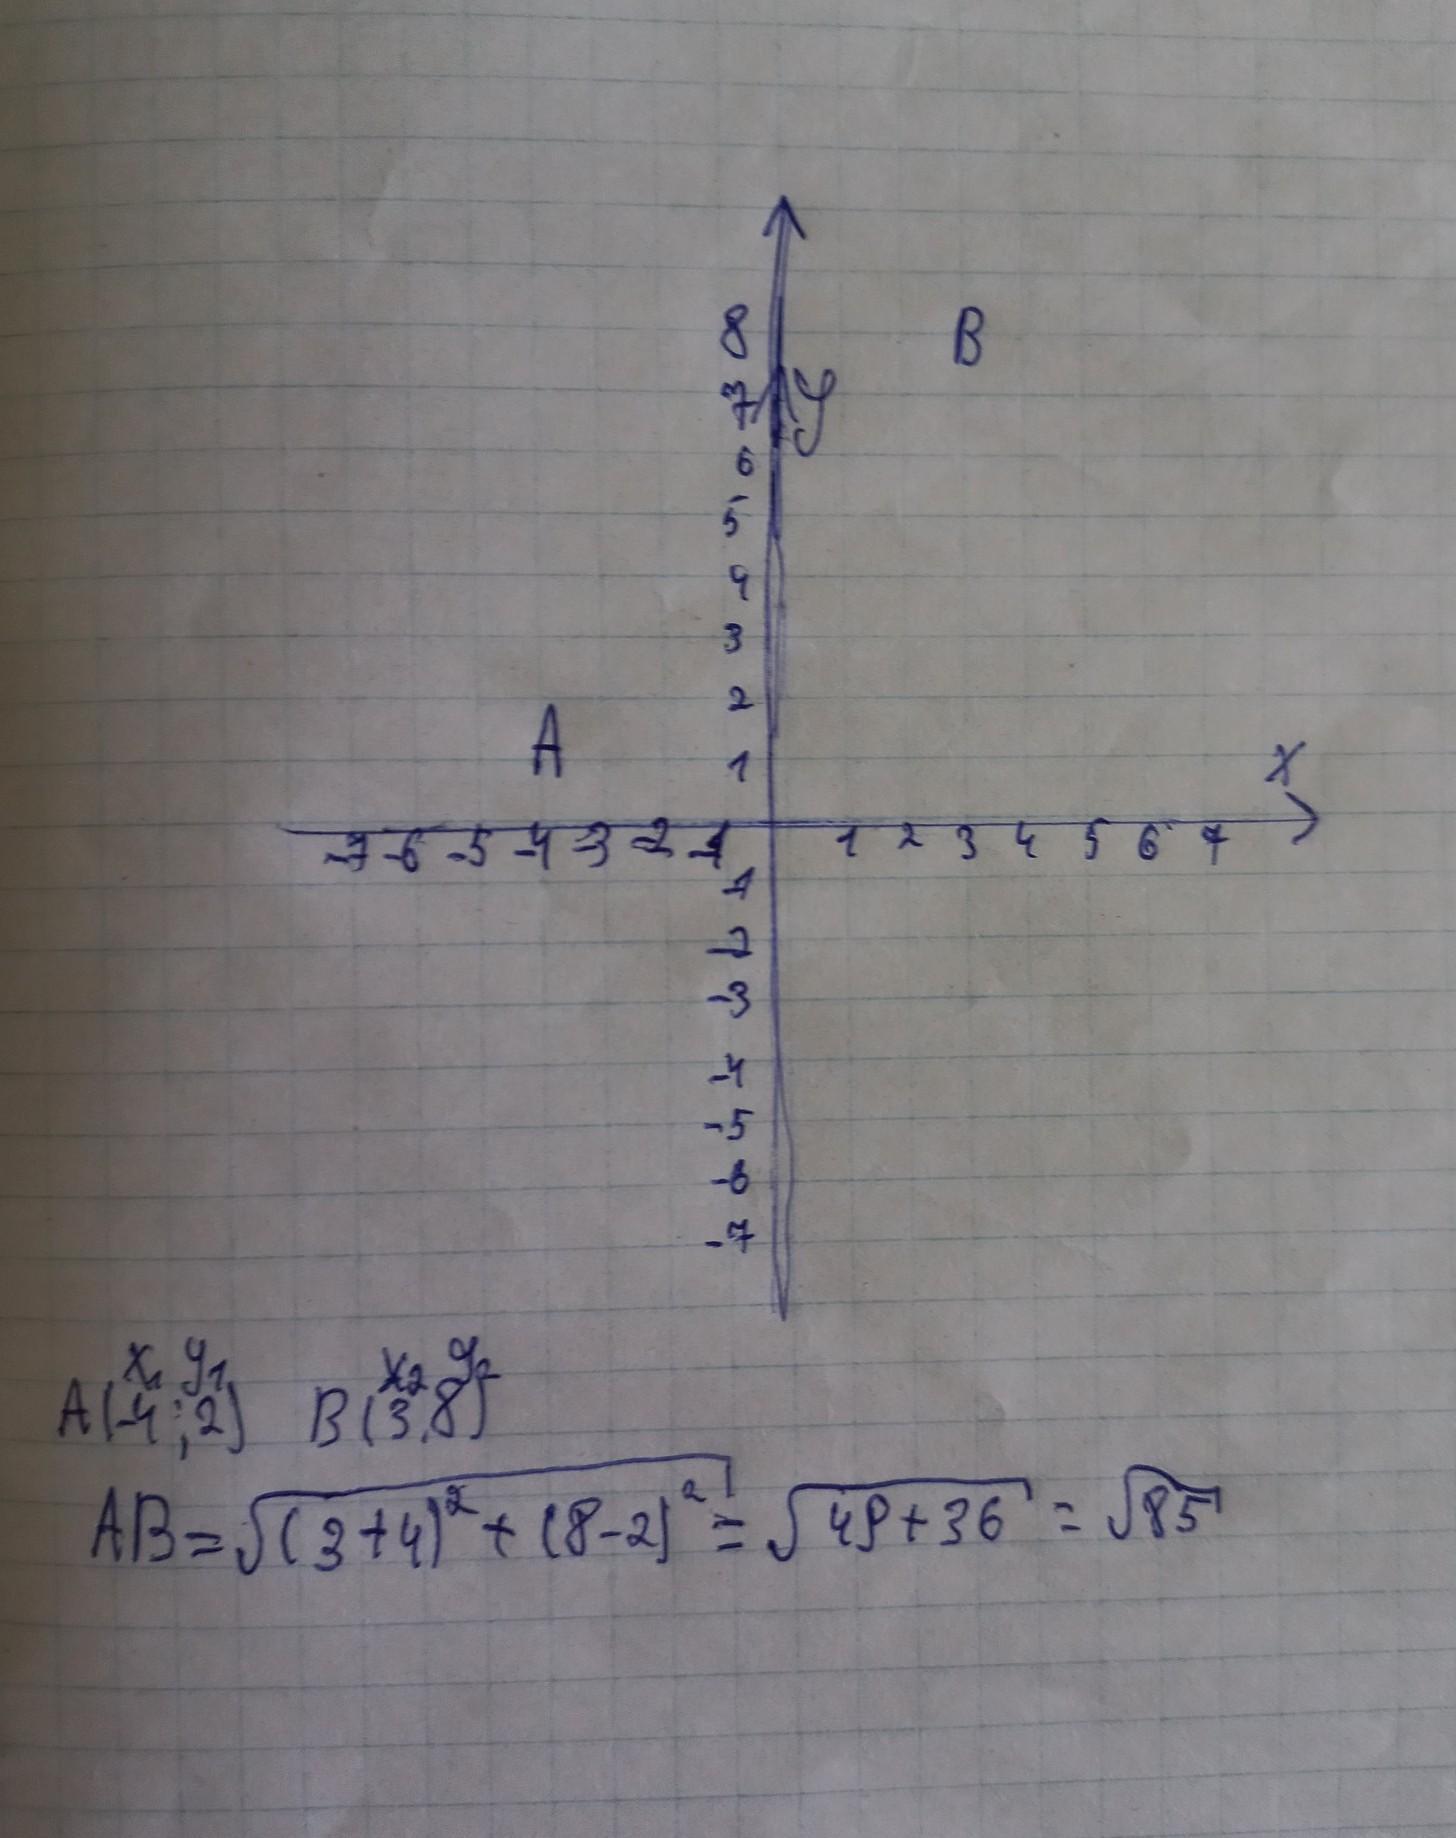 8 B
7 y
6
5
4
3
2
A 1 X
-7 -6 -5 -4 -3 -2 -1 1 2 3 4 5 6 7
-1
-2
-3
-4
-5
-6
-7
x₁ y₁ x₂ y₂
A(-4;2) B(3,8)
AB=√((3+4)²+(8-2)²)=√(49+36)=√85